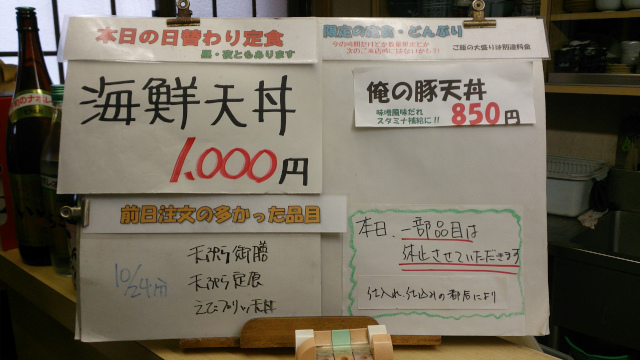 本日の日替わり定食
昼・夜ともあります
海鮮天丼
1,000円
前日注文の多かった品目
10/24分
天ぷら御膳
天ぷら定食
えびプリッ天丼
限定の定食・どんぶり
ご飯の大盛りは別途料金
俺の豚天丼
味噌風味だれ
スタミナ補給に!!
850円
本日、一部品目は
休止させていただきます
仕入れ、仕込みの都合により